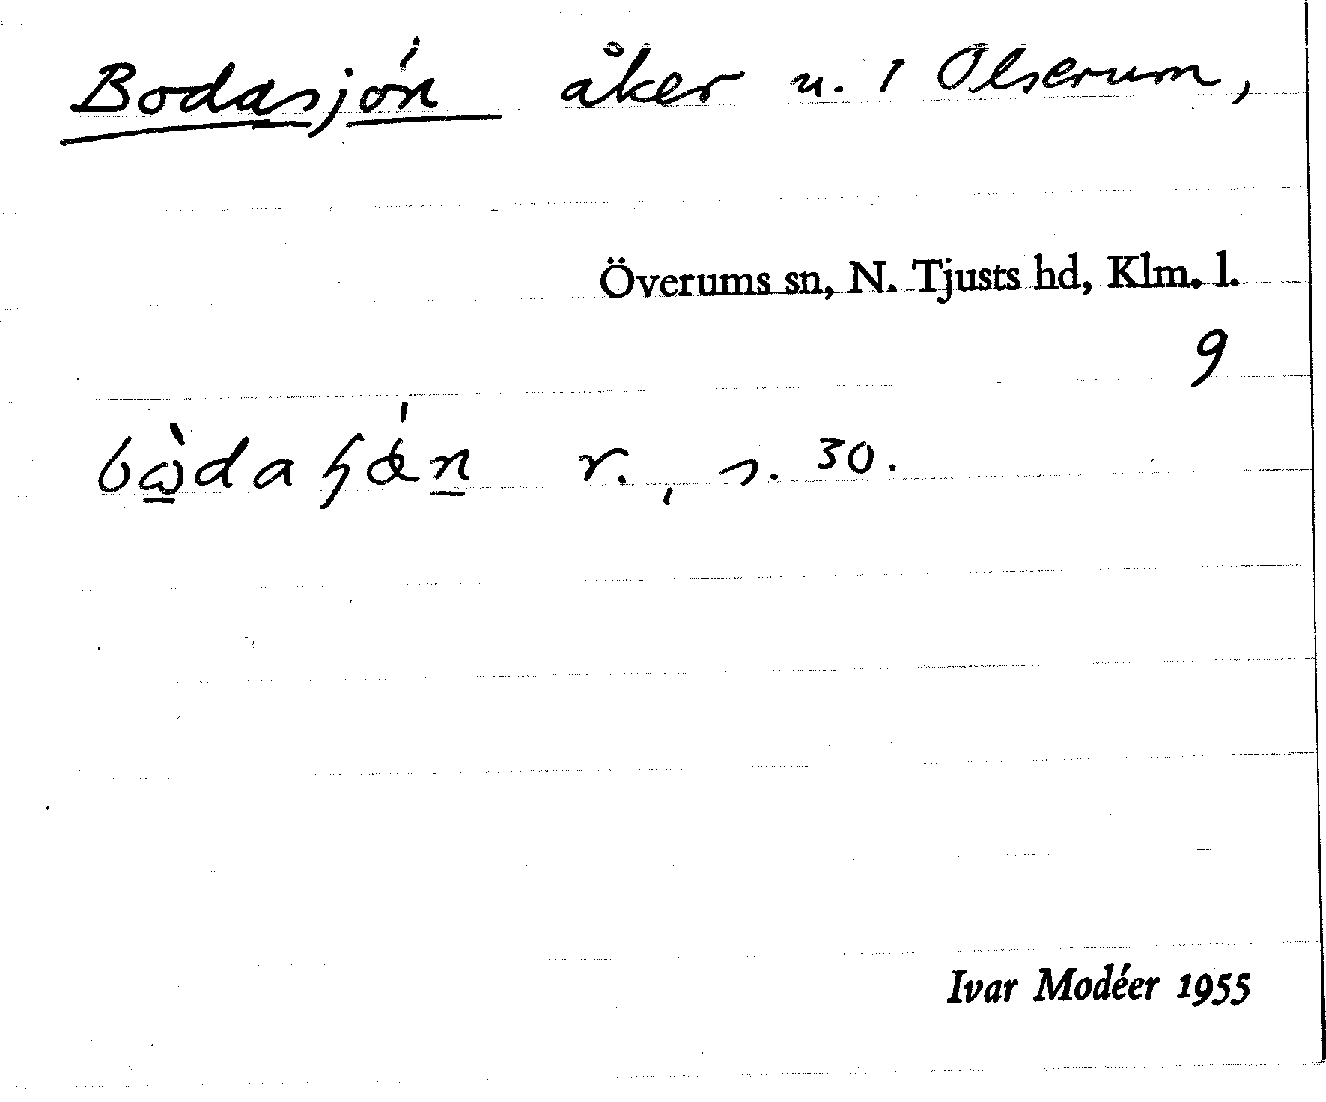 Bodasjön åker u. 1 Olserum,
Överums sn, N. Tjusts hd, Klm. l.
9
r., s. 30.
Ivar Modéer 1955